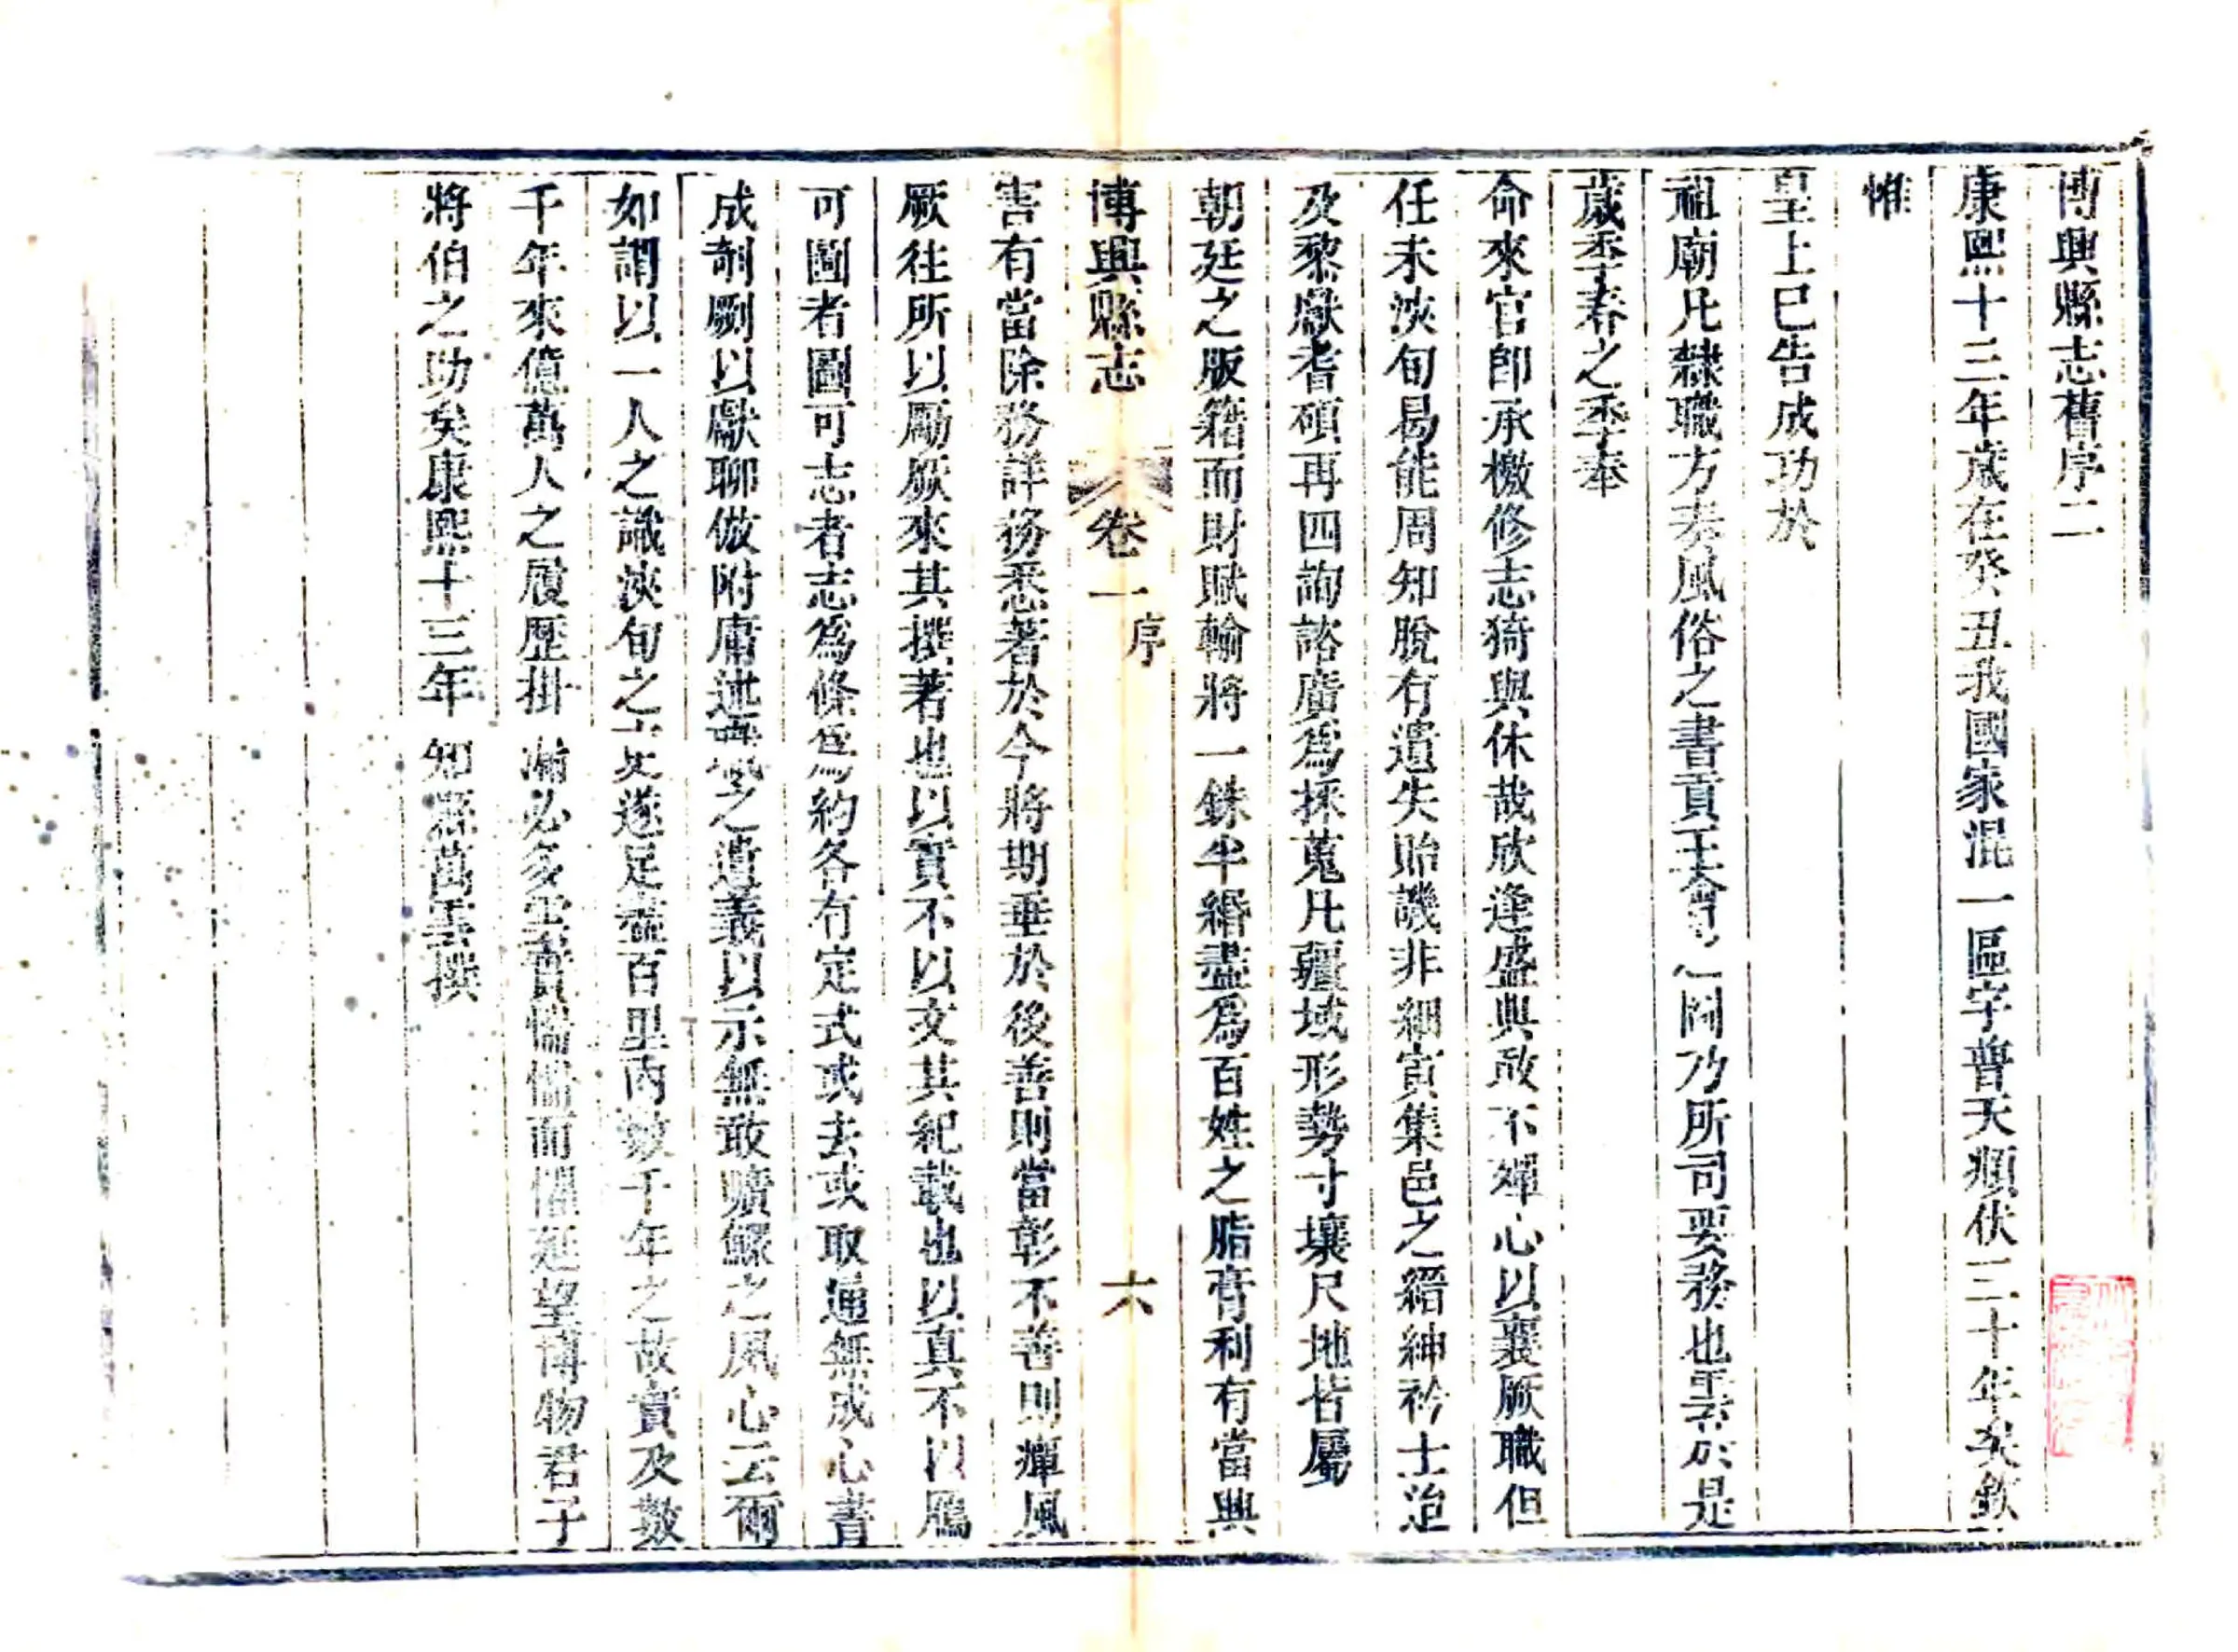 博興縣志舊序二
康熙十三年歲在癸丑我國家混一區宇普天頫伏三十年矣欽
惟
皇上巳告成功於
祖廟凡隸職方奏風俗之書貢王會之圖乃所司要務也雲於是
歲季春之季奉
命來官卽承檄修志猗與休哉欣逢盛典敢不殫心以襄厥職但
任未浹旬曷能周知脫有遺失貽譏非細寅集邑之縉紳衿士迨
及黎獻耆碩再四詢諮廣爲採蒐凡疆域形勢寸壤尺地皆屬
朝廷之版籍而財賦輸將一銖半緡盡爲百姓之脂膏利有當興
博興縣志 卷一 序 六
害有當除務詳務悉著於今將期垂於後善則當彰不善則癉風
厥往所以勵厥來其撰著也以實不以文其紀載也以真不以鴈
可圖者圖可志者志爲條爲約各有定式或去或取通無成心書
成剞劂以獻聊倣附庸述職之遺義以示無敢曠鰥之夙心云爾
如謂以一人之識浹旬之文遂足盡百里內數千年之故實及數
千年來億萬人之履歷掛漏必多雲實惴惴而懼延望博物君子
將伯之功矣康熙十三年知縣萬雲撰